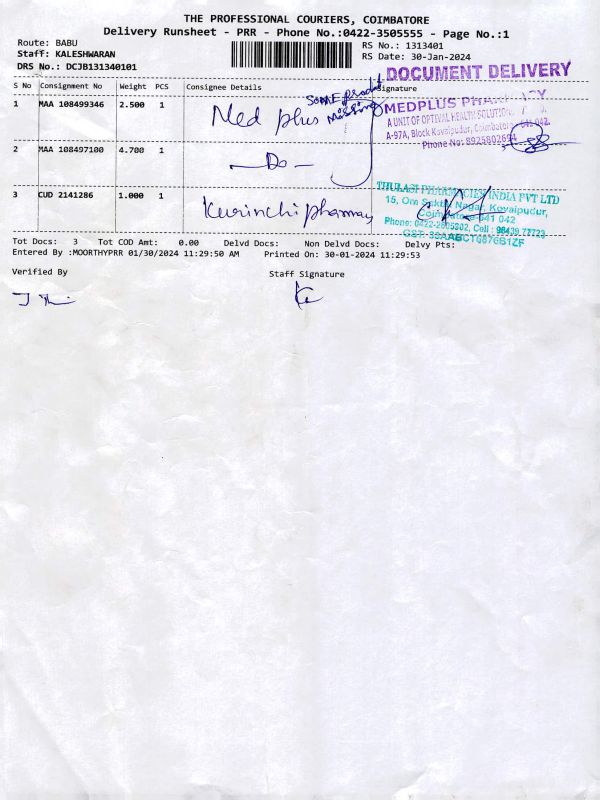 THE PROFESSIONAL COURIERS, COIMBATORE
Delivery Runsheet - PRR - Phone No.:0422-3505555 - Page No.:1
Route: BABU
Staff: KALESHWARAN
DRS No.: DCJB131340101
RS No.: 1313401
RS Date: 30-Jan-2024
DOCUMENT DELIVERY
S No Consignment No Weight PCS Consignee Details Signature
1 MAA 108499346 2.500 1 Med plus
SOME
Missing
MEDPLUS
A UNIT OF OPTIVAL HEALTH SOLUTION
A-97A, Block Kovaipudur, Coimbatore - 641 042.
Phone No: 8925802694
2 MAA 108497100 4.700 1 —Do—
3 CUD 2141286 1.000 1 Kurinchi pharmay
THULASI PHARMACIES INDIA PVT LTD
15, Om Sakthi Nagar, Kovaipudur,
Coimbatore-641 042
Phone: 0422-2605802, Cell :
GST:
Tot Docs: 3 Tot COD Amt: 0.00 Delvd Docs: Non Delvd Docs: Delvy Pts:
Entered By :MOORTHYPRR 01/30/2024 11:29:50 AM Printed On: 30-01-2024 11:29:53
Verified By Staff Signature